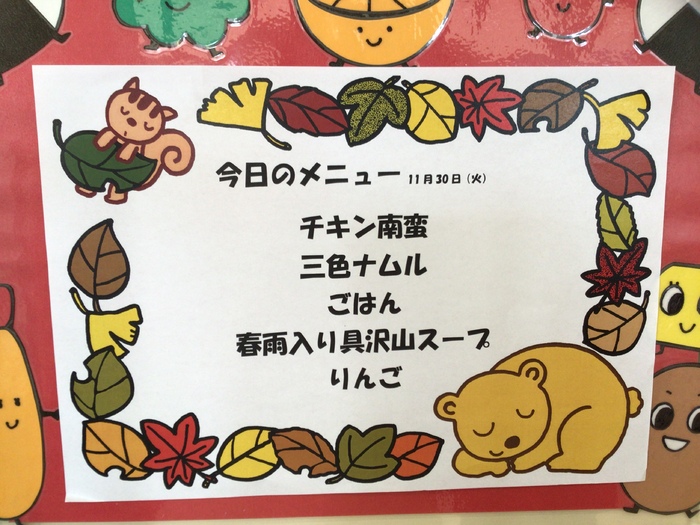 今日のメニュー 11月30日(火)
チキン南蛮
三色ナムル
ごはん
春雨入り具沢山スープ
りんご